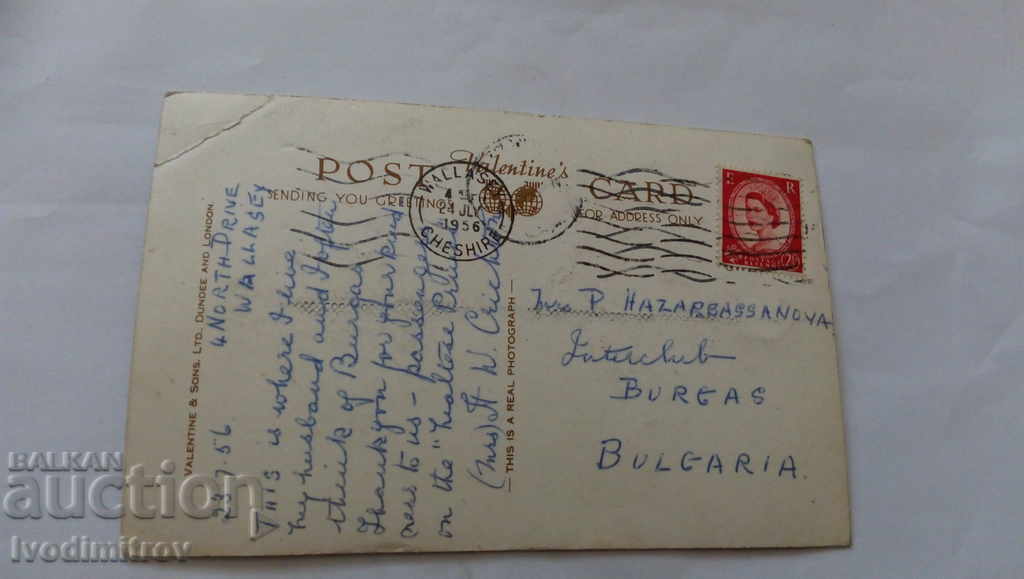 POST Valentine's CARD
SENDING YOU GREETINGS
FOR ADDRESS ONLY
WALLASEY
24 JLY
1956
CHESHIRE
E R
VALENTINE & SONS. LTD. DUNDEE AND LONDON.
4 NORTH DRIVE
WALLASEY
23.7.56
THIS is where I live
my husband and I often
think of Burgas
Thank you for your kind
ness to us - passengers
on the "Maltese Prince"
(Mrs) A W
THIS IS A REAL PHOTOGRAPH
Mrs P. HAZARBASSANOVA
Interclub
BURGAS
BULGARIA.
BALKAN
auction
Ivodimitrov